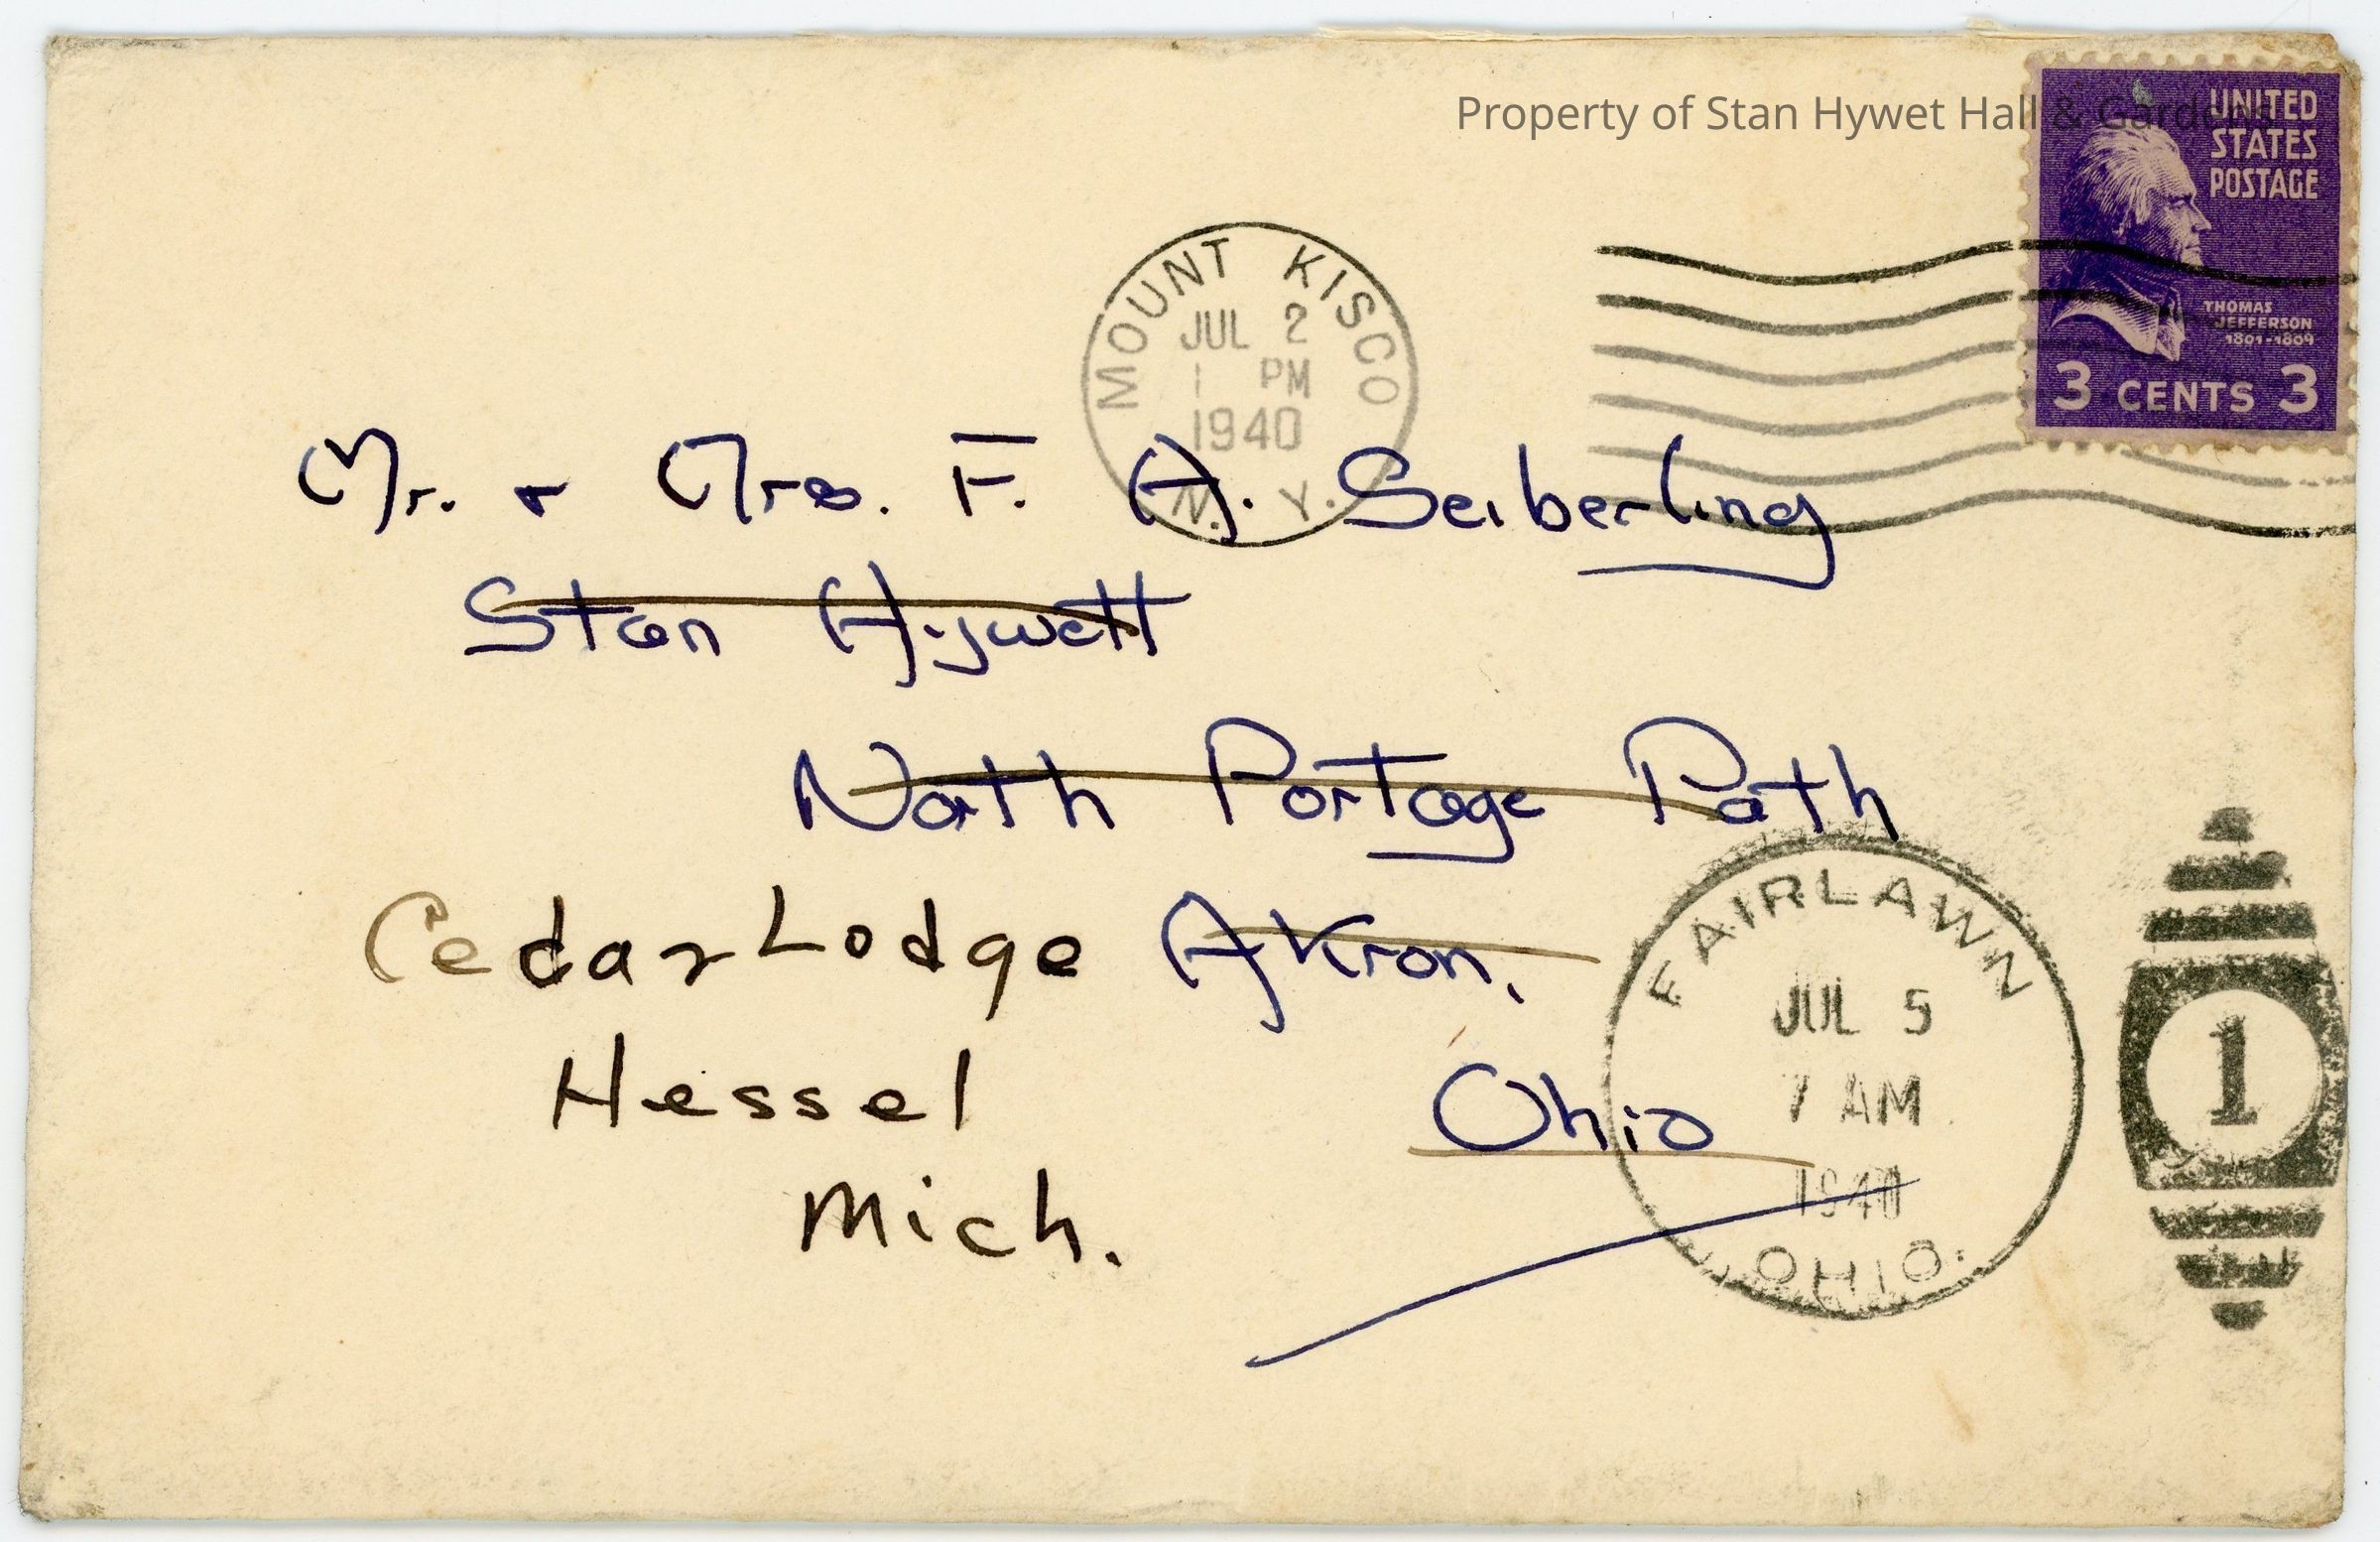 Property of Stan Hywet Hall & Gardens
UNITED
STATES
POSTAGE
THOMAS
JEFFERSON
1801-1809
3 CENTS 3
MOUNT KISCO
JUL 2
1 PM
1940
N. Y.
Mr. & Mrs. F. A. Seiberling
Stan Hywett
North Portage Path
Cedar Lodge Akron,
Hessel Ohio
Mich.
FAIRLAWN
JUL 5
7 AM
1940
OHIO.
1